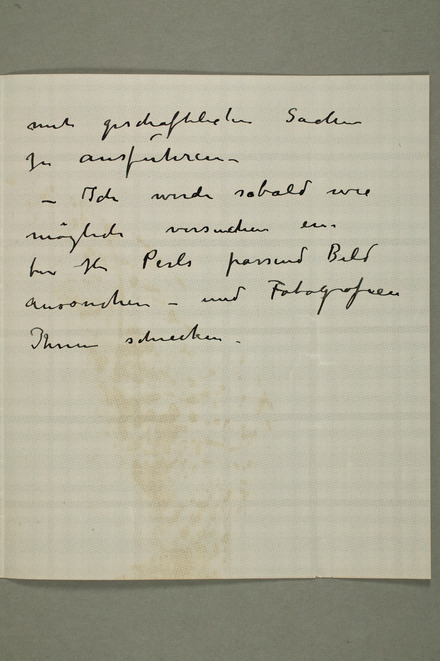 mit geschäftlichen Sachen
zu ausführen –
– Ich werde sobald wie
möglich versuchen ein
für Perls passend Bild
aussuchen – und Fotografieen
Ihnen schicken.